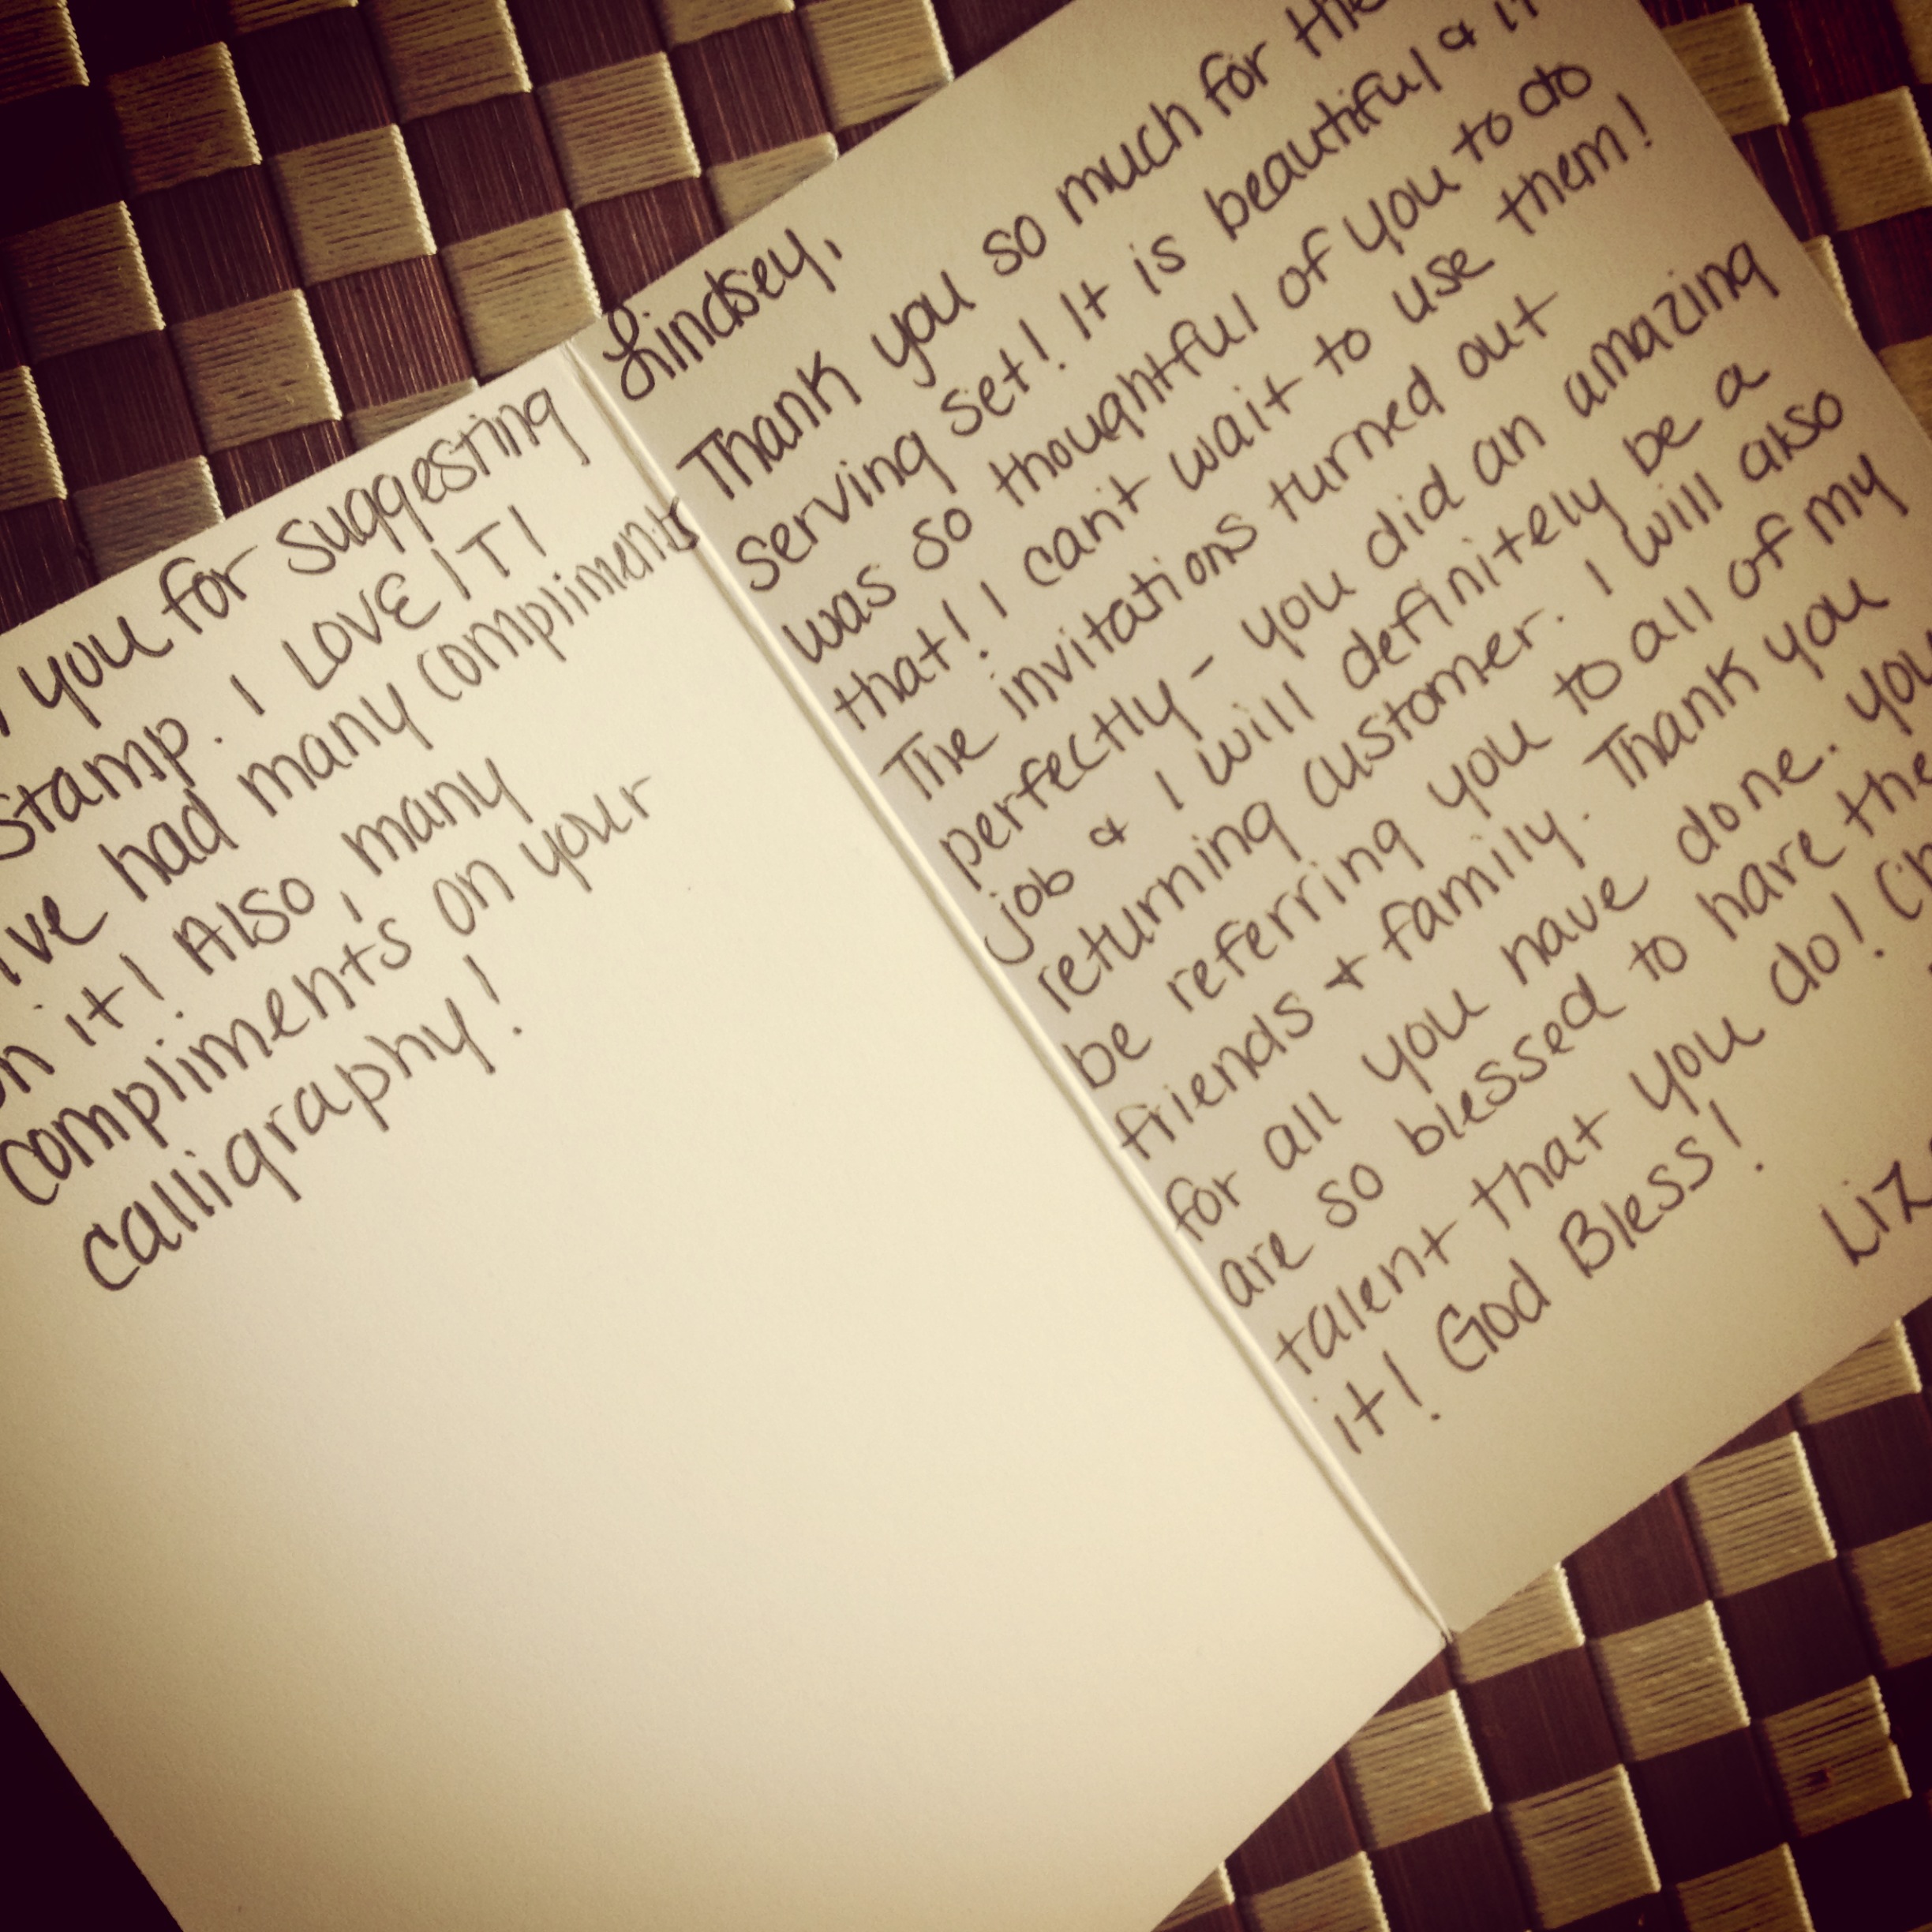 you for suggesting
Stamp. I LOVE IT!
I've had many compliments
on it! Also, many
compliments on your
calligraphy!
Lindsey,
Thank you so much for the
serving set! It is beautiful & it
was so thoughtful of you to do
that! I can't wait to use them!
The invitations turned out
perfectly - you did an amazing
job & I will definitely be a
returning customer. I will also
be referring you to all of my
friends & family. Thank you
for all you have done. You
are so blessed to have the
talent that you do!
it! God Bless!
Liz